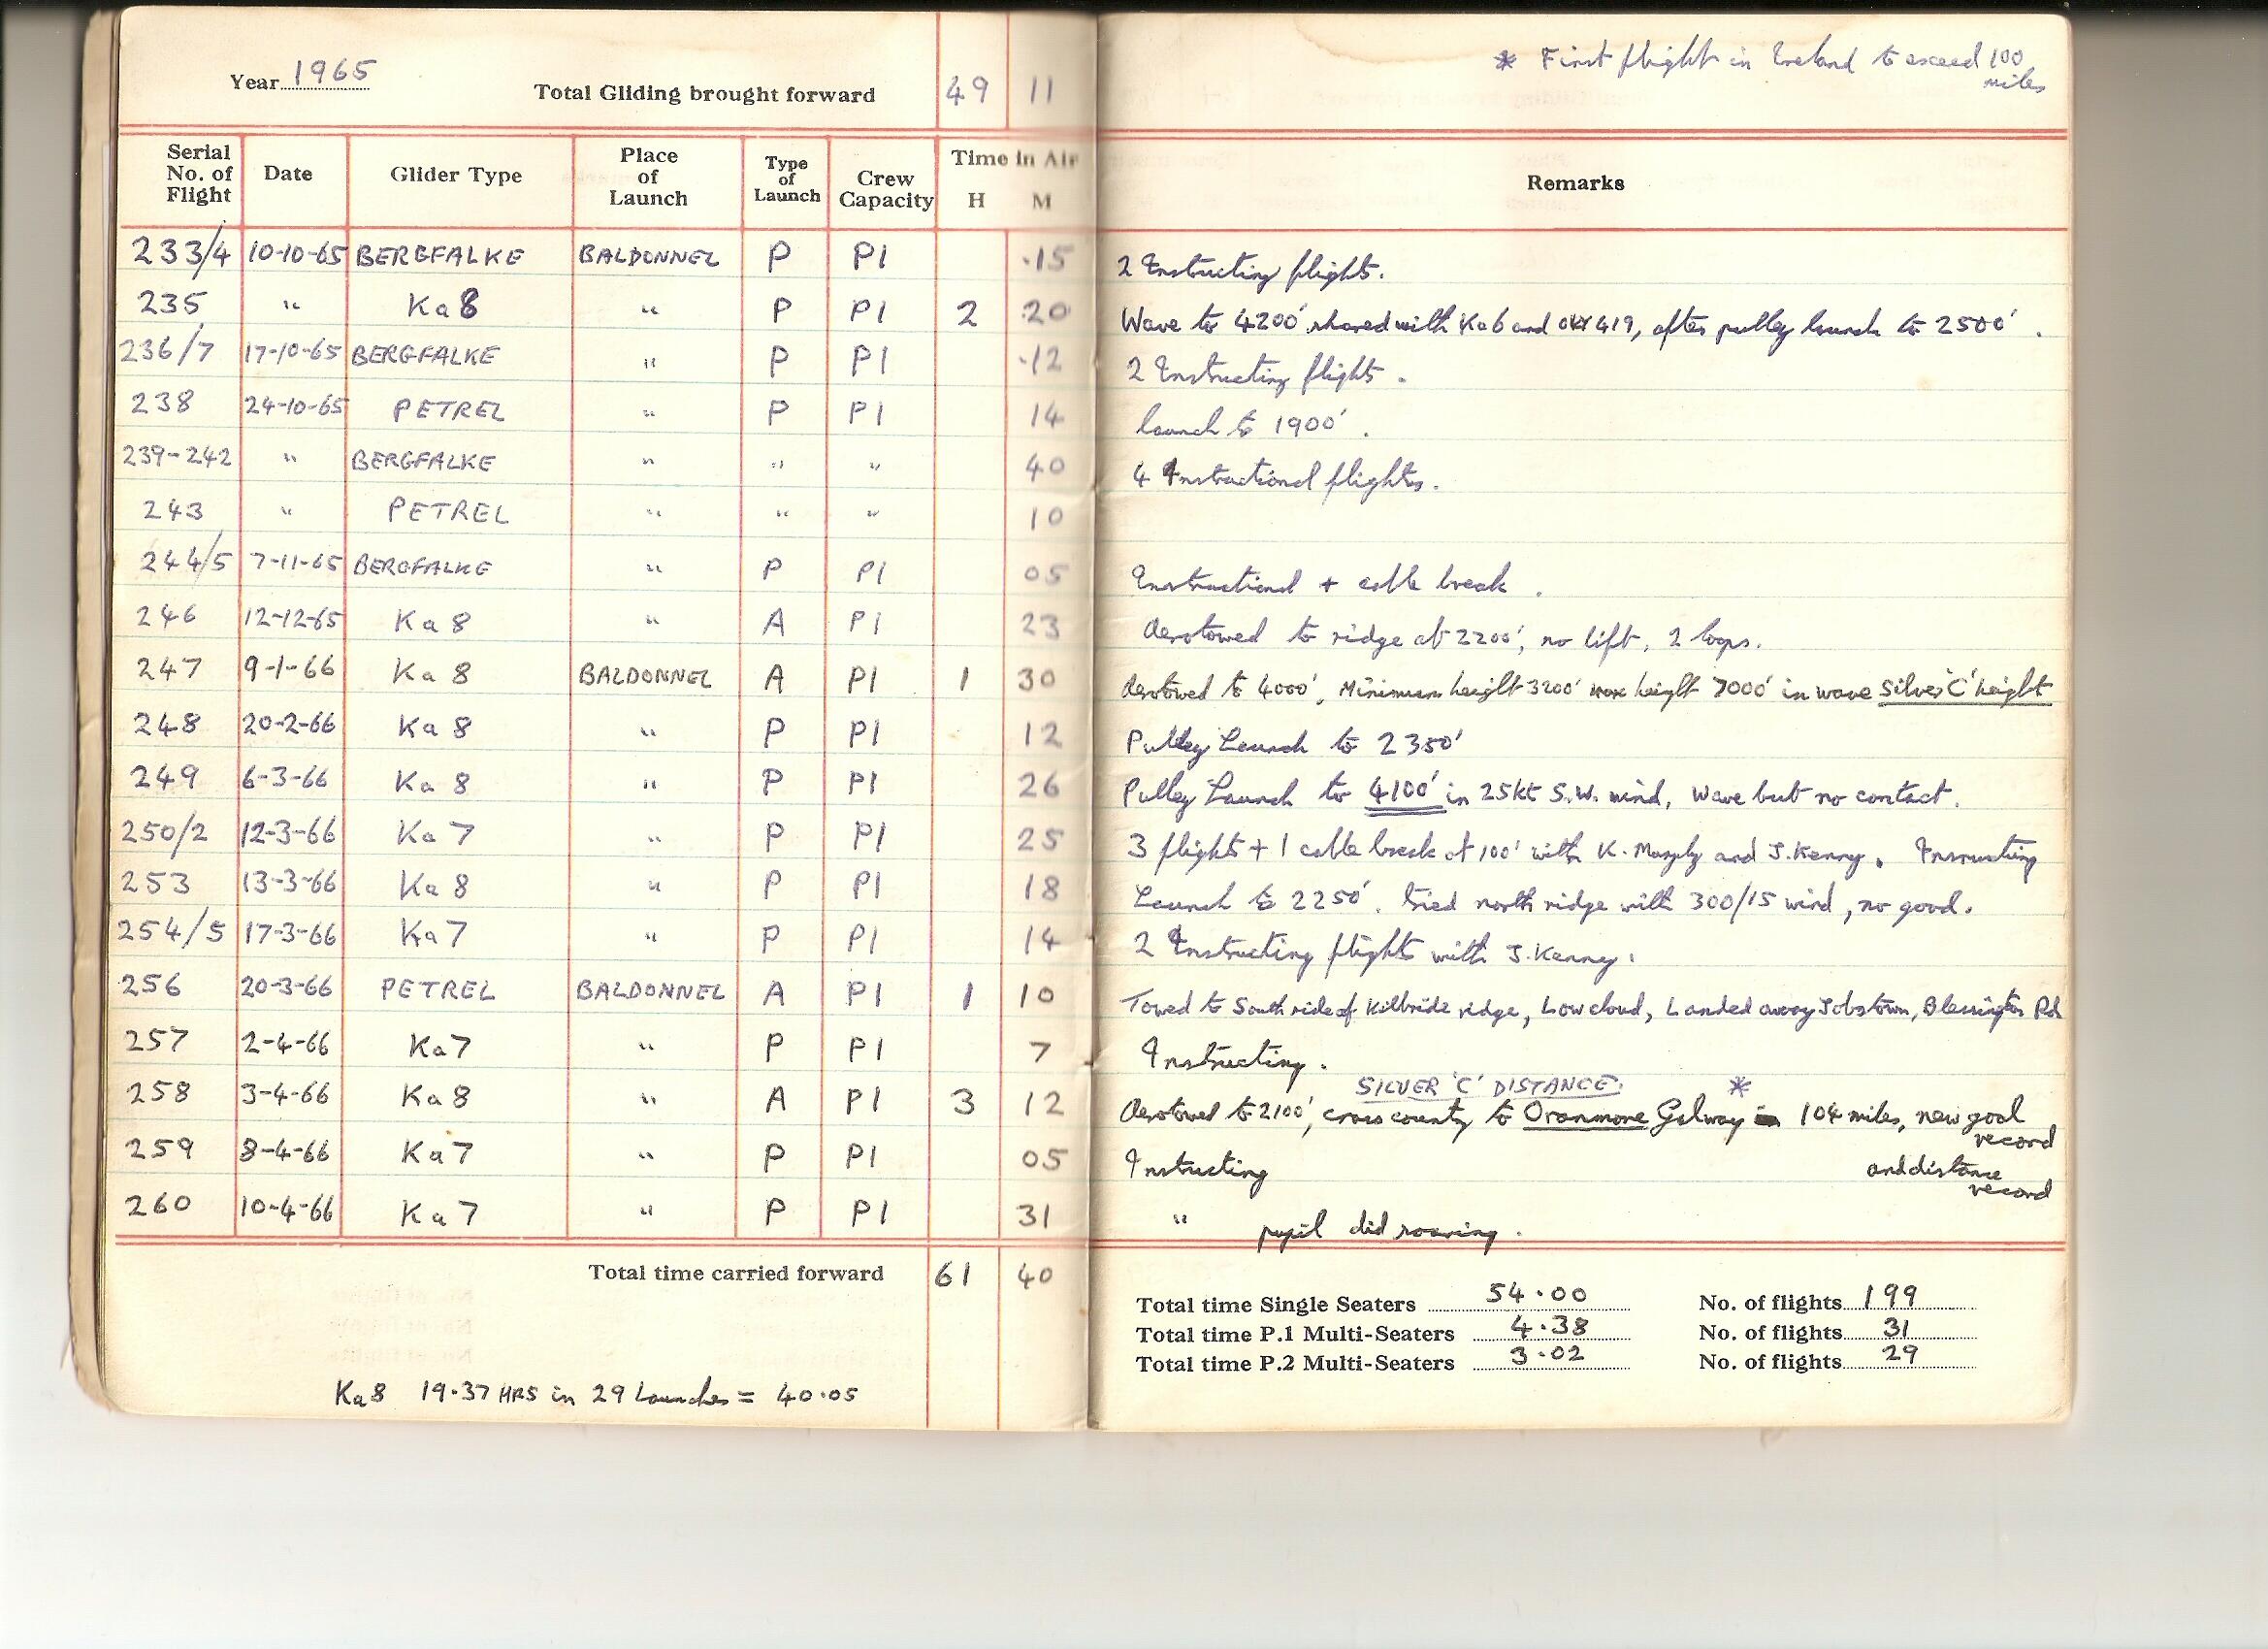 Year 1965 Total Gliding brought forward 49 11
* First flight in Ireland to exceed 100
miles
Serial No. of Flight Date Glider Type Place of Launch Type of Launch Crew Capacity Time in Air H M Remarks
233/4 10-10-65 BERGFALKE BALDONNEL P P1 .15 2 Instructing flights.
235 " Ka 8 " P P1 2 20 Wave to 4200' shared with Ka6 and 419, after pulley launch to 2500'.
236/7 17-10-65 BERGFALKE " P P1 .12 2 Instructing flights.
238 24-10-65 PETREL " P P1 14 launch to 1900'.
239-242 " BERGFALKE " " " 40 4 Instructional flights.
243 " PETREL " " " 10
244/5 7-11-65 BERGFALKE " P P1 05 Instructional + cable break.
246 12-12-65 Ka 8 " A P1 23 Aerotowed to ridge at 2200', no lift, 2 loops.
247 9-1-66 Ka 8 BALDONNEL A P1 1 30 Aerotowed to 4000', Minimum height 3200' max height 7000' in wave Silver 'C' height
248 20-2-66 Ka 8 " P P1 12 Pulley Launch to 2350'
249 6-3-66 Ka 8 " P P1 26 Pulley Launch to 4100' in 25kt S.W. wind, Wave but no contact.
250/2 12-3-66 Ka 7 " P P1 25 3 flights + 1 cable break at 100' with K. and J. Kenny. Instructing
253 13-3-66 Ka 8 " P P1 18 Launch to 2250'. Tried north ridge with 300/15 wind, no good.
254/5 17-3-66 Ka 7 " P P1 14 2 Instructing flights with J. Kenny.
256 20-3-66 PETREL BALDONNEL A P1 1 10 Towed to South side of Kilbride ridge, Low cloud, Landed away Jobstown, Blessington Rd
257 2-4-66 Ka 7 " P P1 7 Instructing.
SILVER 'C' DISTANCE. *
258 3-4-66 Ka 8 " A P1 3 12 Aerotowed to 2100', cross county to Oranmore Galway 104 miles, new goal
record
259 8-4-66 Ka 7 " P P1 05 Instructing and distance
record
260 10-4-66 Ka 7 " P P1 31 " pupil did soaring.
Total time carried forward 61 40
Total time Single Seaters 54.00 No. of flights 199
Total time P.1 Multi-Seaters 4.38 No. of flights 31
Total time P.2 Multi-Seaters 3.02 No. of flights 29
Ka 8 19.37 HRS in 29 Launches = 40.05